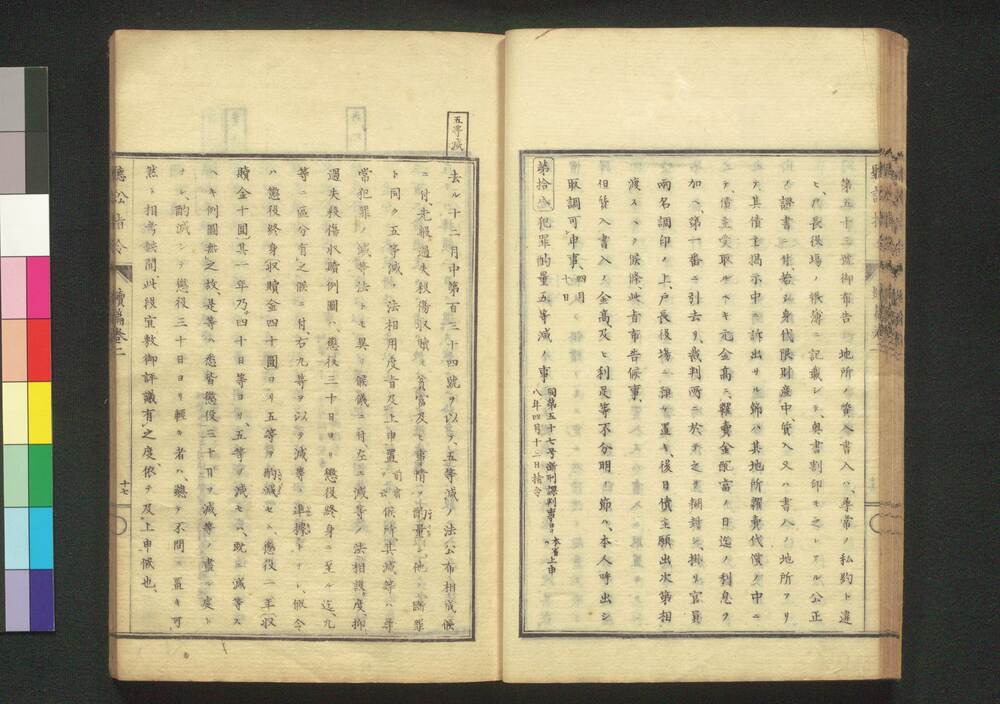 第五十三號御布告ノ地所ノ質入書入ハ尋常ノ私約ト違
ヒ戸長役場ノ帳簿ニ記載シテ奥書割印モ之レアル公正
ノ證書ニ付若シ身代限財産中質入又ハ書入ノ地所アリ
テ其債主掲示中ニ訴出サル節ハ其地所糶賣代償ノ中ニ
テ債主受取ルヘキ元金高ニ糶賣金配當ノ日迄ノ利息ヲ
加ヘ第一番ニ引去リ裁判所ニ於テ之ヲ糊封シ掛リ官員
兩名調印ノ上戸長役場ニ預ケ置キ後日債主願出次第相
渡スヘク候條此旨布告候事
但質入書入ノ金高及ヒ利足等不分明ノ節ハ本人呼出シ
取調可申事 四月七日
第拾 犯罪酌量五等減ノ事 同第五十七号断刑課判事ヨリ本省上申 八年四月十三日指令
五等減
去ル十二月中第百三十四號ヲ以テ五等減ノ法公布相成候
ニ付先般過失殺傷收贖モ貧富及ヒ事情ヲ酌量シ他ノ斷罪
ト同ク五等減ノ法相用度旨及上申置候所其減等ハ尋
常犯罪ノ減等法トモ異リ候儀ニ付左ニ減等ハ法相設度抑
過失殺傷收贖例圖ハ懲役三十日ヨリ懲役終身ニ至ル迄九
等ニ區分有之候ニ付右九等ヲ以テ減等ノ準據トナシ假令
ハ懲役終身收贖金四十圓ヨリ五等ヲ酌減セハ懲役一年收
贖金十圓其一年乃四十日等ヨリ五等ヲ減セハ既ニ減等ス
ヘキ例圖無之故是等ハ悉皆懲役三十日ヲ減等ノ盡處ト
ナシ酌減シテ懲役三十日ヨリ輕キ者ハ聽テ不問ニ置キ可
然ト相考候間此段宜敷御評議有之度依テ及上申候也
聽訟指令 續編卷二 十七